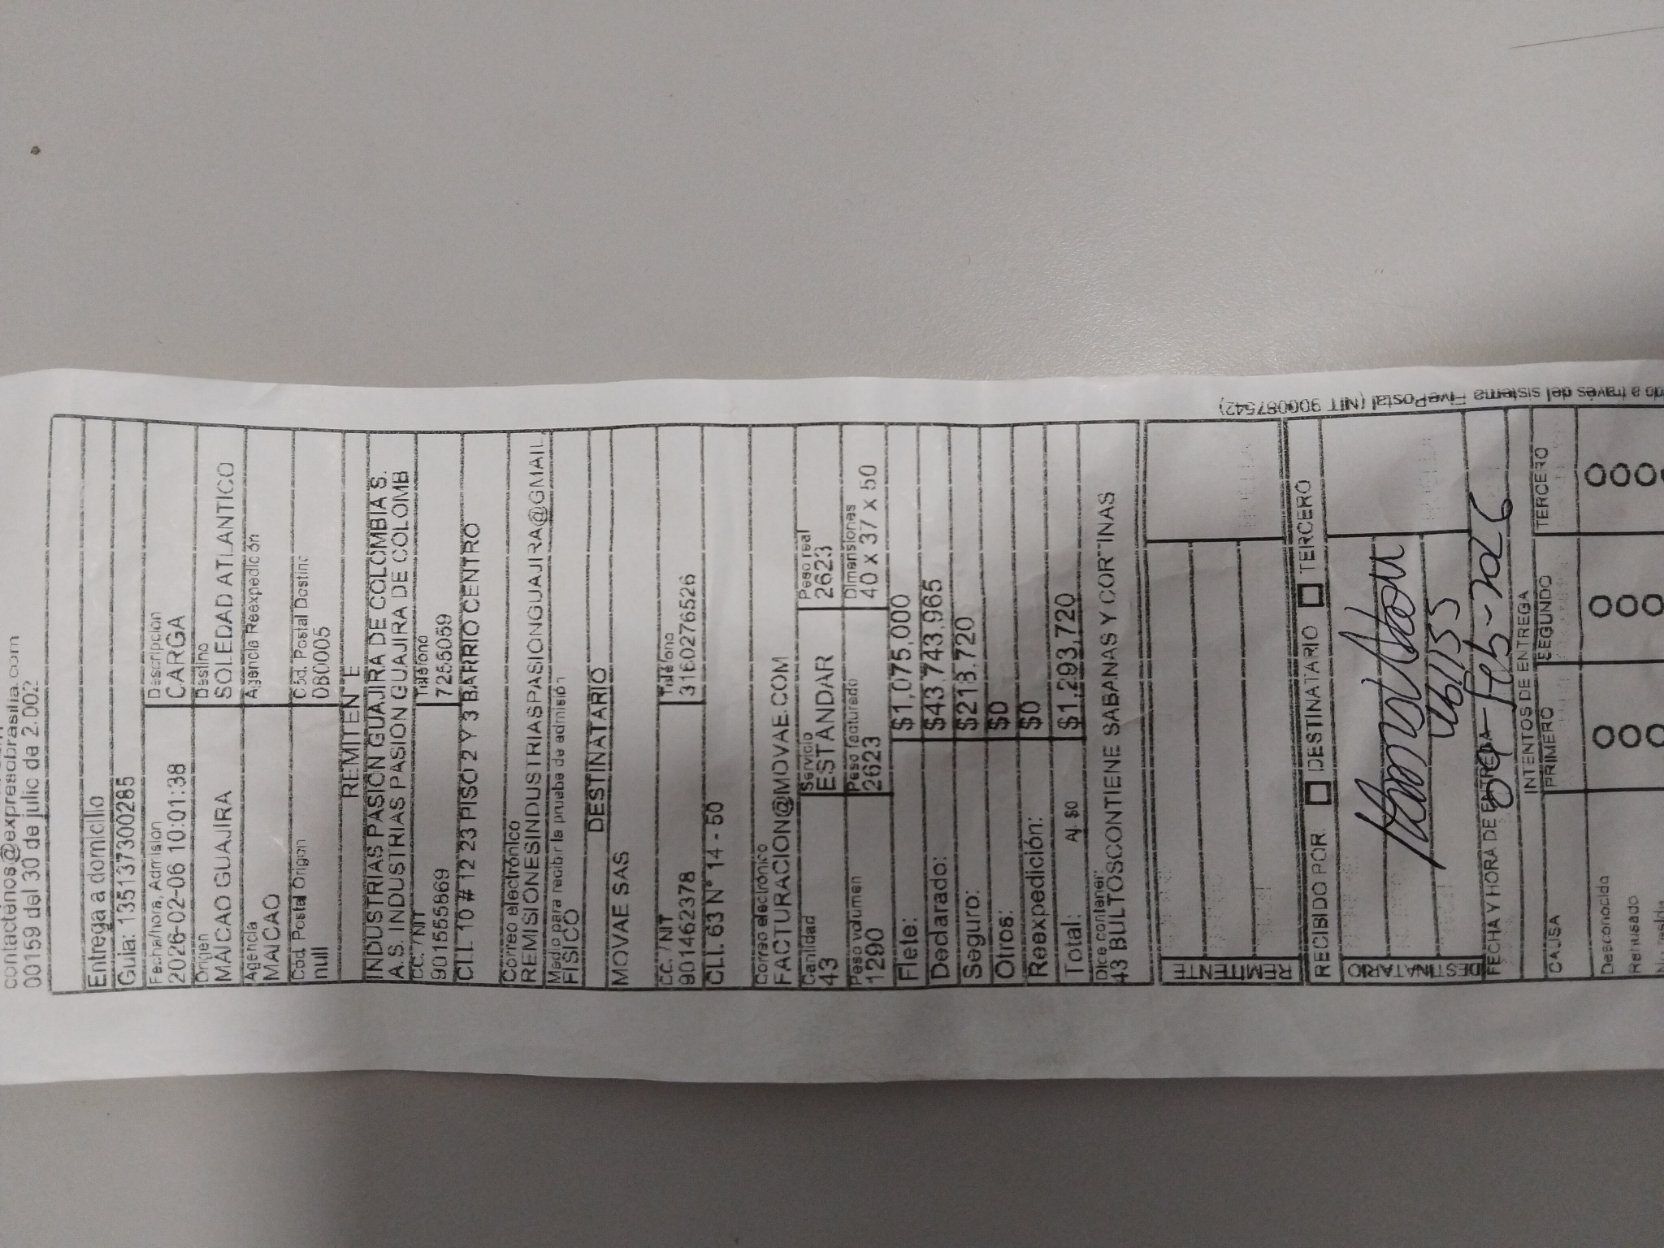 contactenos@expresobrasilia.com
00159 del 30 de julio de 2.002
Entrega a domicilio
Guia: 1351373002&5
Fecha/hora, Admision Descripcion
2026-02-06 10:01:38 CARGA
Origen Destino
MAICAO GUAJIRA SOLEDAD ATLANTICO
Agencia Agencia Reexpedición
MAICAO
Cod. Postal Origen Cód. Postal Destino
null 080005
REMITENTE
INDUSTRIAS PASION GUAJIRA DE COLOMBIA S.
A.S. INDUSTRIAS PASION GUAJIRA DE COLOMB
CC./NIT Teléfono
901555869 7255059
CLL 10 # 12 23 PISO 2 Y 3 BARRIO CENTRO
Correo electrónico
REMISIONESINDUSTRIASPASIONGUAJIRA@GMAIL.
Medio para recibir la prueba de admisión
FISICO
DESTINATARIO
MOVAE SAS
CC./NIT Teléfono
901462378 3160276526
CLL 63 N° 14 - 50
Correo electrónico
FACTURACION@MOVAE.COM
Cantidad Servicio Peso real
43 ESTANDAR 2623
Peso volumen Peso facturado Dimensiones
1290 2623 40 x 37 x 50
Flete: $1,075,000
Declarado: $43,743,965
Seguro: $218,720
Otros: $0
Reexpedición: $0
Total: Aj. $0 $1,293,720
Dice contener
43 BULTOSCONTIENE SABANAS Y CORTINAS
REMITENTE
RECIBIDO POR DESTINATARIO TERCERO
DESTINATARIO
FECHA Y HORA DE ENTREGA
09-Feb-2026
INTENTOS DE ENTREGA
CAUSA PRIMERO SEGUNDO TERCERO
Desconocido
Rehusado
do a través del sistema FivePostal (NIT 900087542)